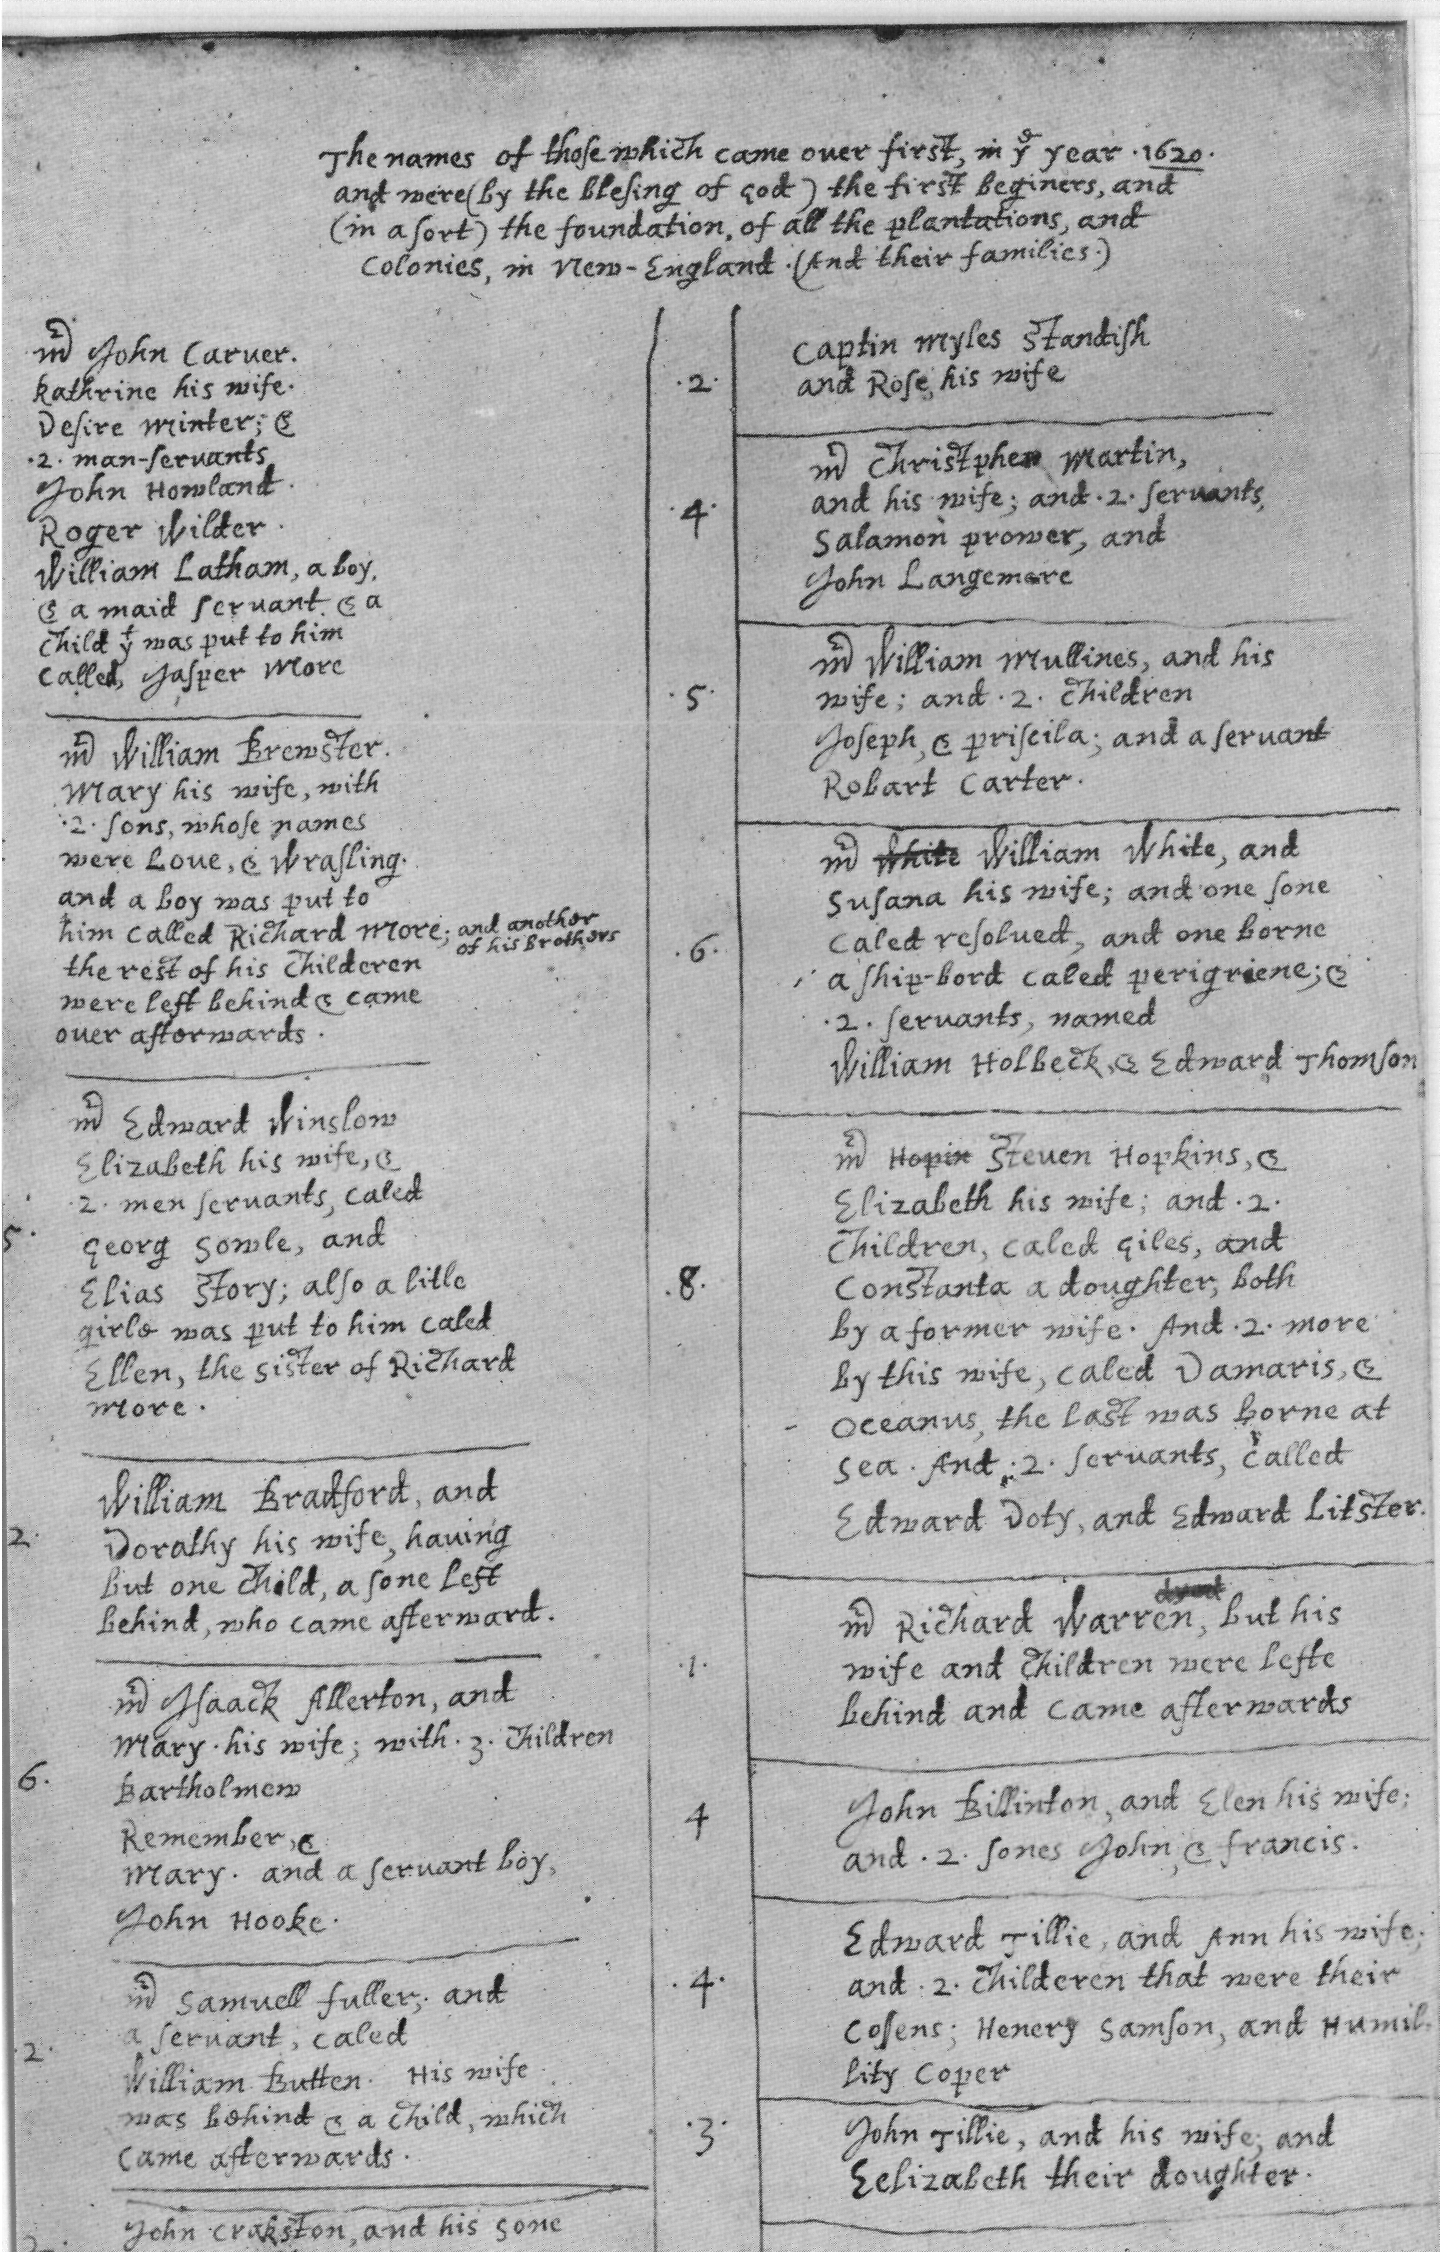 The names of those which came over first, in yᵉ year ·1620·
and were (by the blesing of god) the first beginers, and
(in a sort) the foundation, of all the plantations, and
Colonies, in New-England · (And their families·)
mʳ John Carver.
Kathrine his wife·
Desire Minter; &
·2· man-servants
John Howland·
Roger Wilder·
William Latham, a boy,
& a maid servant. & a
child yᵗ was put to him
called, Jasper More
mʳ William Brewster.
Mary his wife, with
·2· sons, whose names
were Love, & Wrasling·
and a boy was put to
him called Richard More; and another
of his brothers
the rest of his childeren
were left behind & came
over afterwards·
5·
mʳ Edward Winslow
Elizabeth his wife, &
·2· men servants, caled
Georg Sowle, and
Elias Story; also a litle
girle was put to him caled
Ellen, the sister of Richard
More·
2·
William Bradford, and
Dorathy his wife, having
but one child, a sone left
behind, who came afterward.
6·
mʳ Isaack Allerton, and
Mary· his wife; with ·3· children
Bartholmew
Remember, &
Mary· and a servant boy,
John Hooke·
·2·
mʳ Samuell Fuller; and
a servant, caled
William Butten· His wife
was behind & a child, which
came afterwards·
John Crakston, and his sone
·2·
Captin Myles Standish
and Rose, his wife
·4·
mʳ Christpher Martin,
and his wife; and ·2· servants,
Salamon prower, and
John Langemore
·5·
mʳ William Mullines, and his
wife; and ·2· children
Joseph, & priscila; and a servant
Robart Carter·
·6·
mʳ White William White, and
Susana his wife; and one sone
caled resolved, and one borne
a ship-bord caled perigriene; &
·2· servants, named
William Holbeck, & Edward Thomson
·8·
mʳ Hopin Steven Hopkins, &
Elizabeth his wife; and ·2·
children, caled Giles, and
Constanta a doughter, both
by a former wife· And ·2· more
by this wife, caled Damaris, &
Oceanus, the last was borne at
sea· And ·2· servants, called
Edward Doty, and Edward Litster.
·1·
mʳ Richard Warren, but his
wife and children were lefte
behind and came afterwards
4
John Billinton, and Elen his wife;
and ·2· sones John, & Francis·
·4·
Edward Tillie, and Ann his wife;
and ·2· childeren that were their
cosens; Henery Samson, and Humil-
lity Coper
·3·
John Tillie, and his wife; and
Eelizabeth their doughter·